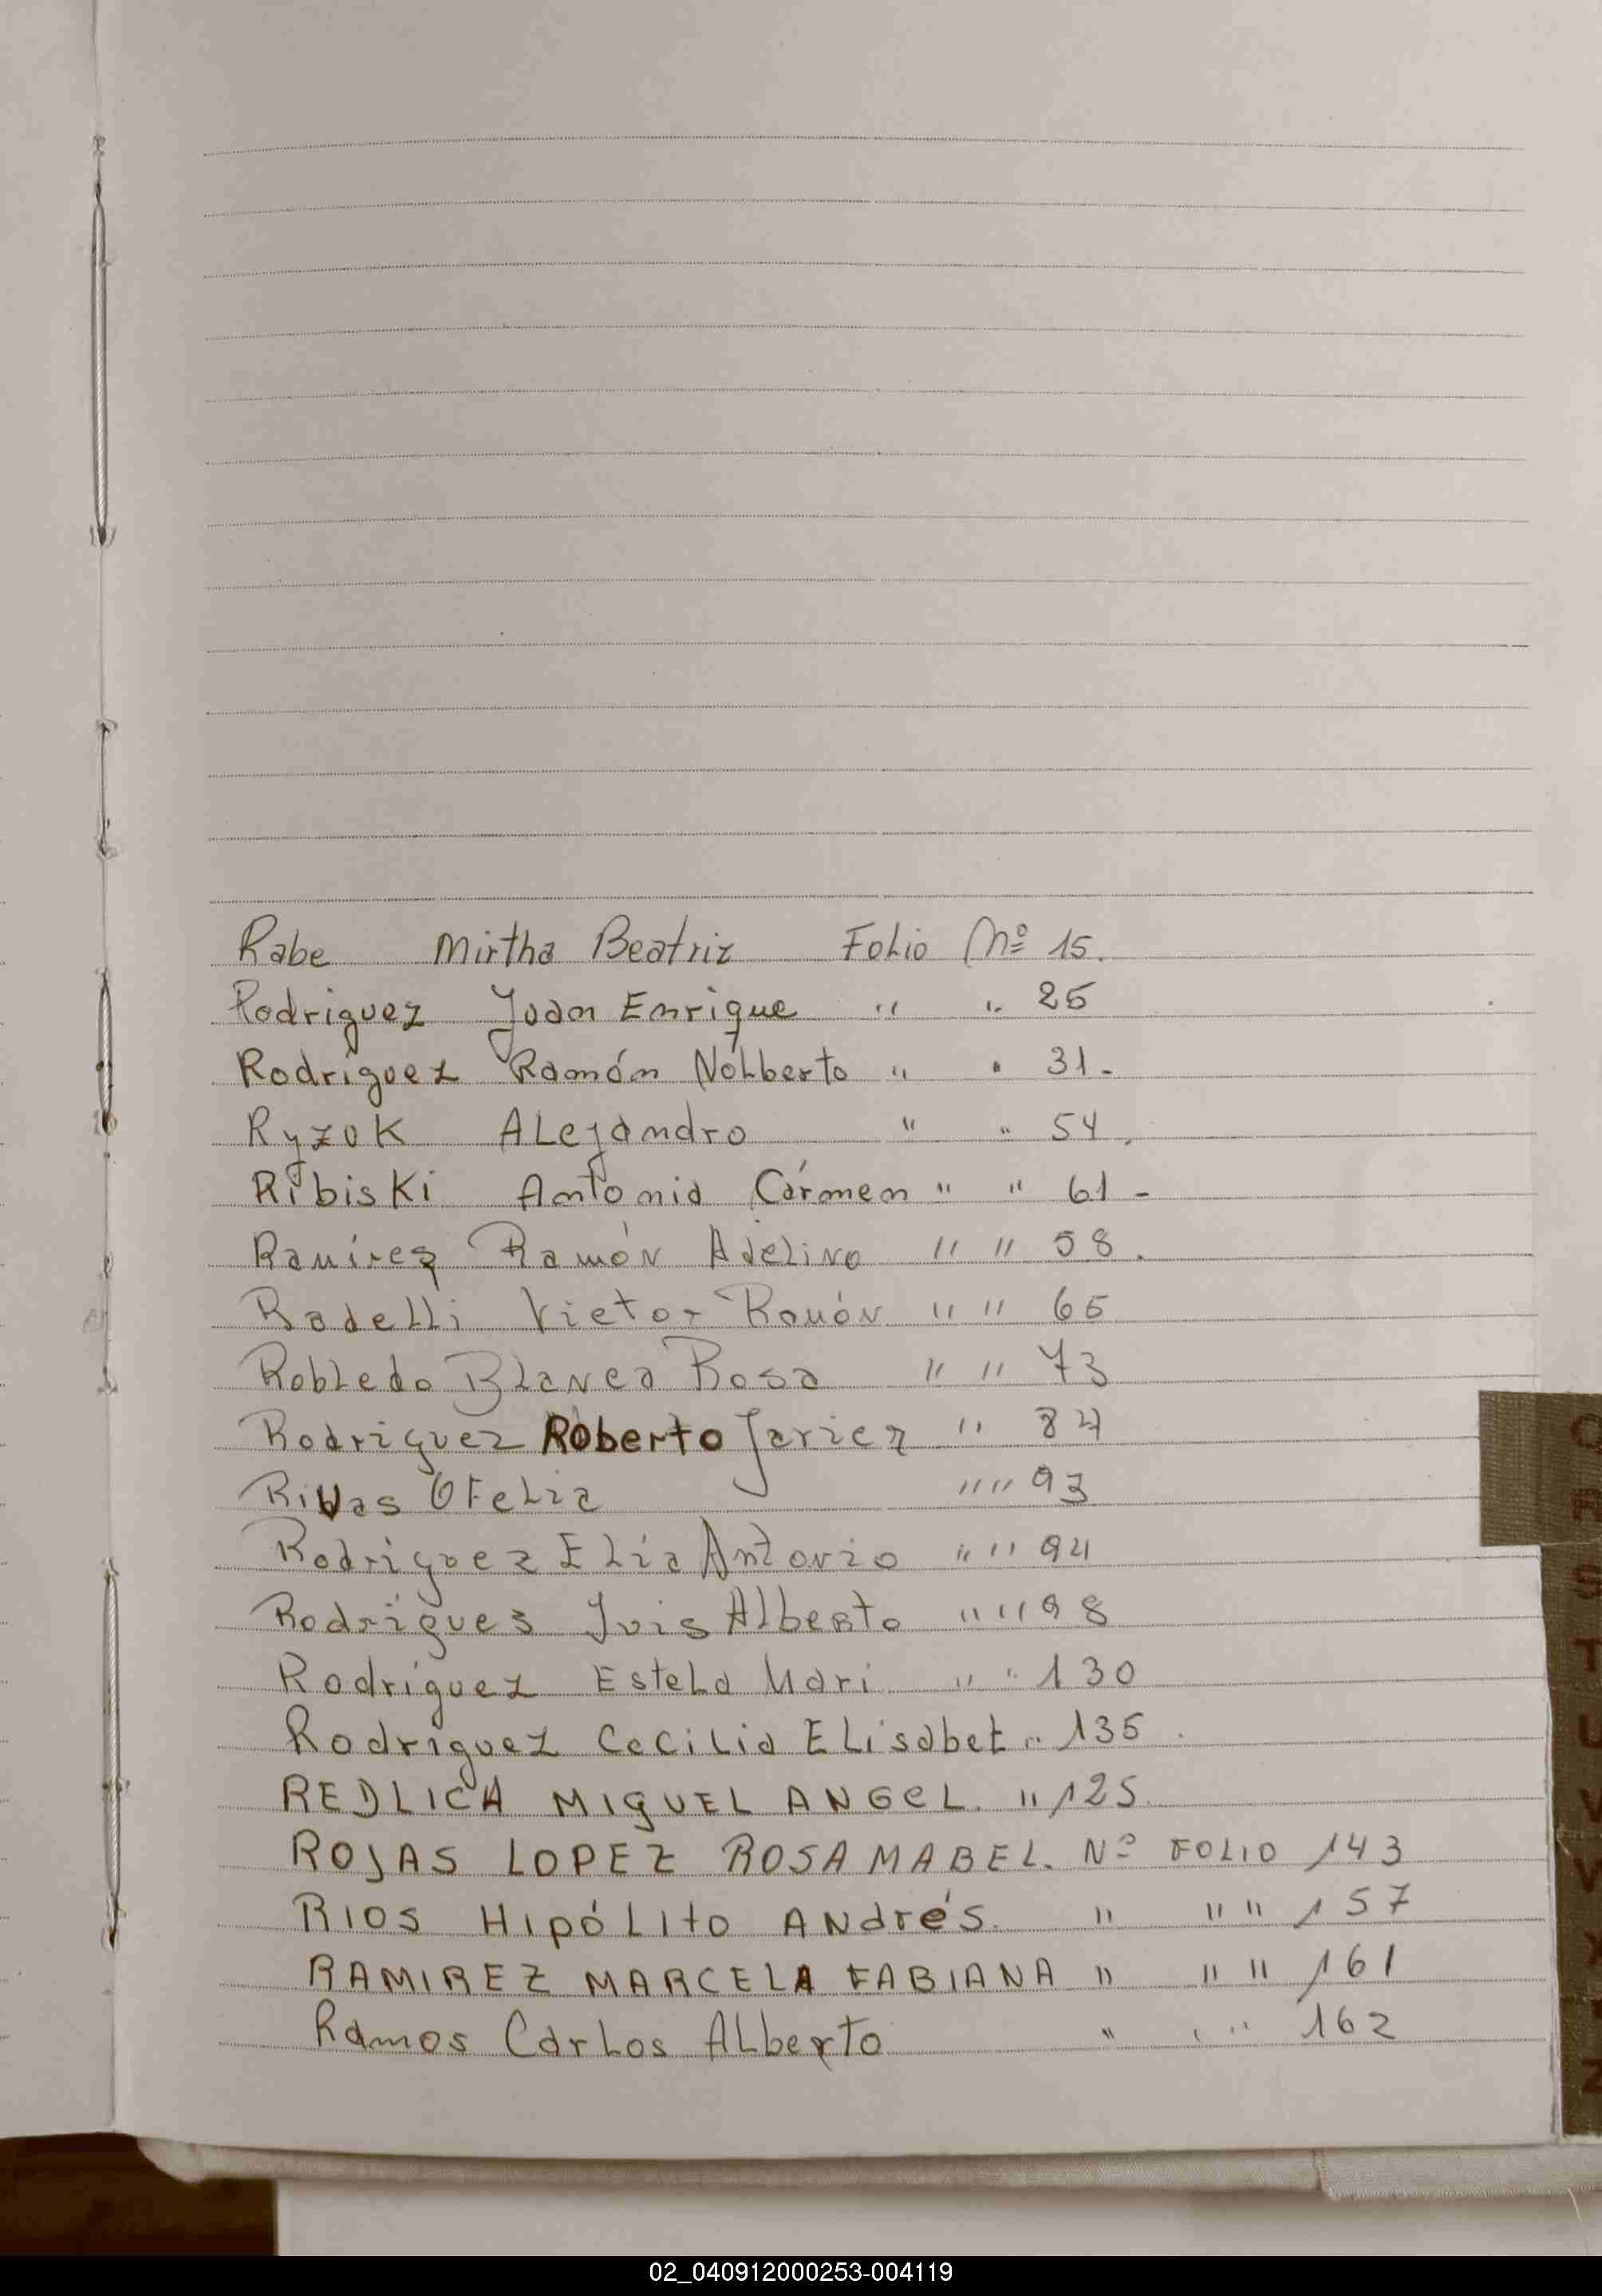 Rabe Mirtha Beatriz Folio Nº 15.
Rodriguez Juan Enrique " " 25
Rodriguez Ramón Nolberto " " 31-
Ryzuk ALejandro " " 54.
Ribiski Antonia Cármen " " 61-
Ramírez Ramón Adelino " " 58.
Radelli Victor Ramón " " 65
RobLedo BLanca Rosa " " 73
Rodriguez Roberto Javier " 84
Rivas OFeLia " " 93
Rodriguez ELia Antonio " " 94
Rodrigues Luis Alberto " " 98
Rodríguez EsteLa Mari " " 130
Rodríguez CeciLia ELisabet " 135.
REDLICA MIGUEL ANGeL. " 125
ROJAS LOPEZ ROSA MABEL. Nº FOLIO 143
RIOS HIpóLIto ANdrés. " " " 157
RAMIREZ MARCELA FABIANA " " " 161
Ramos CarLos ALberto " " " 162
R
S
T
U
V
X
Z
02_040912000253-004119